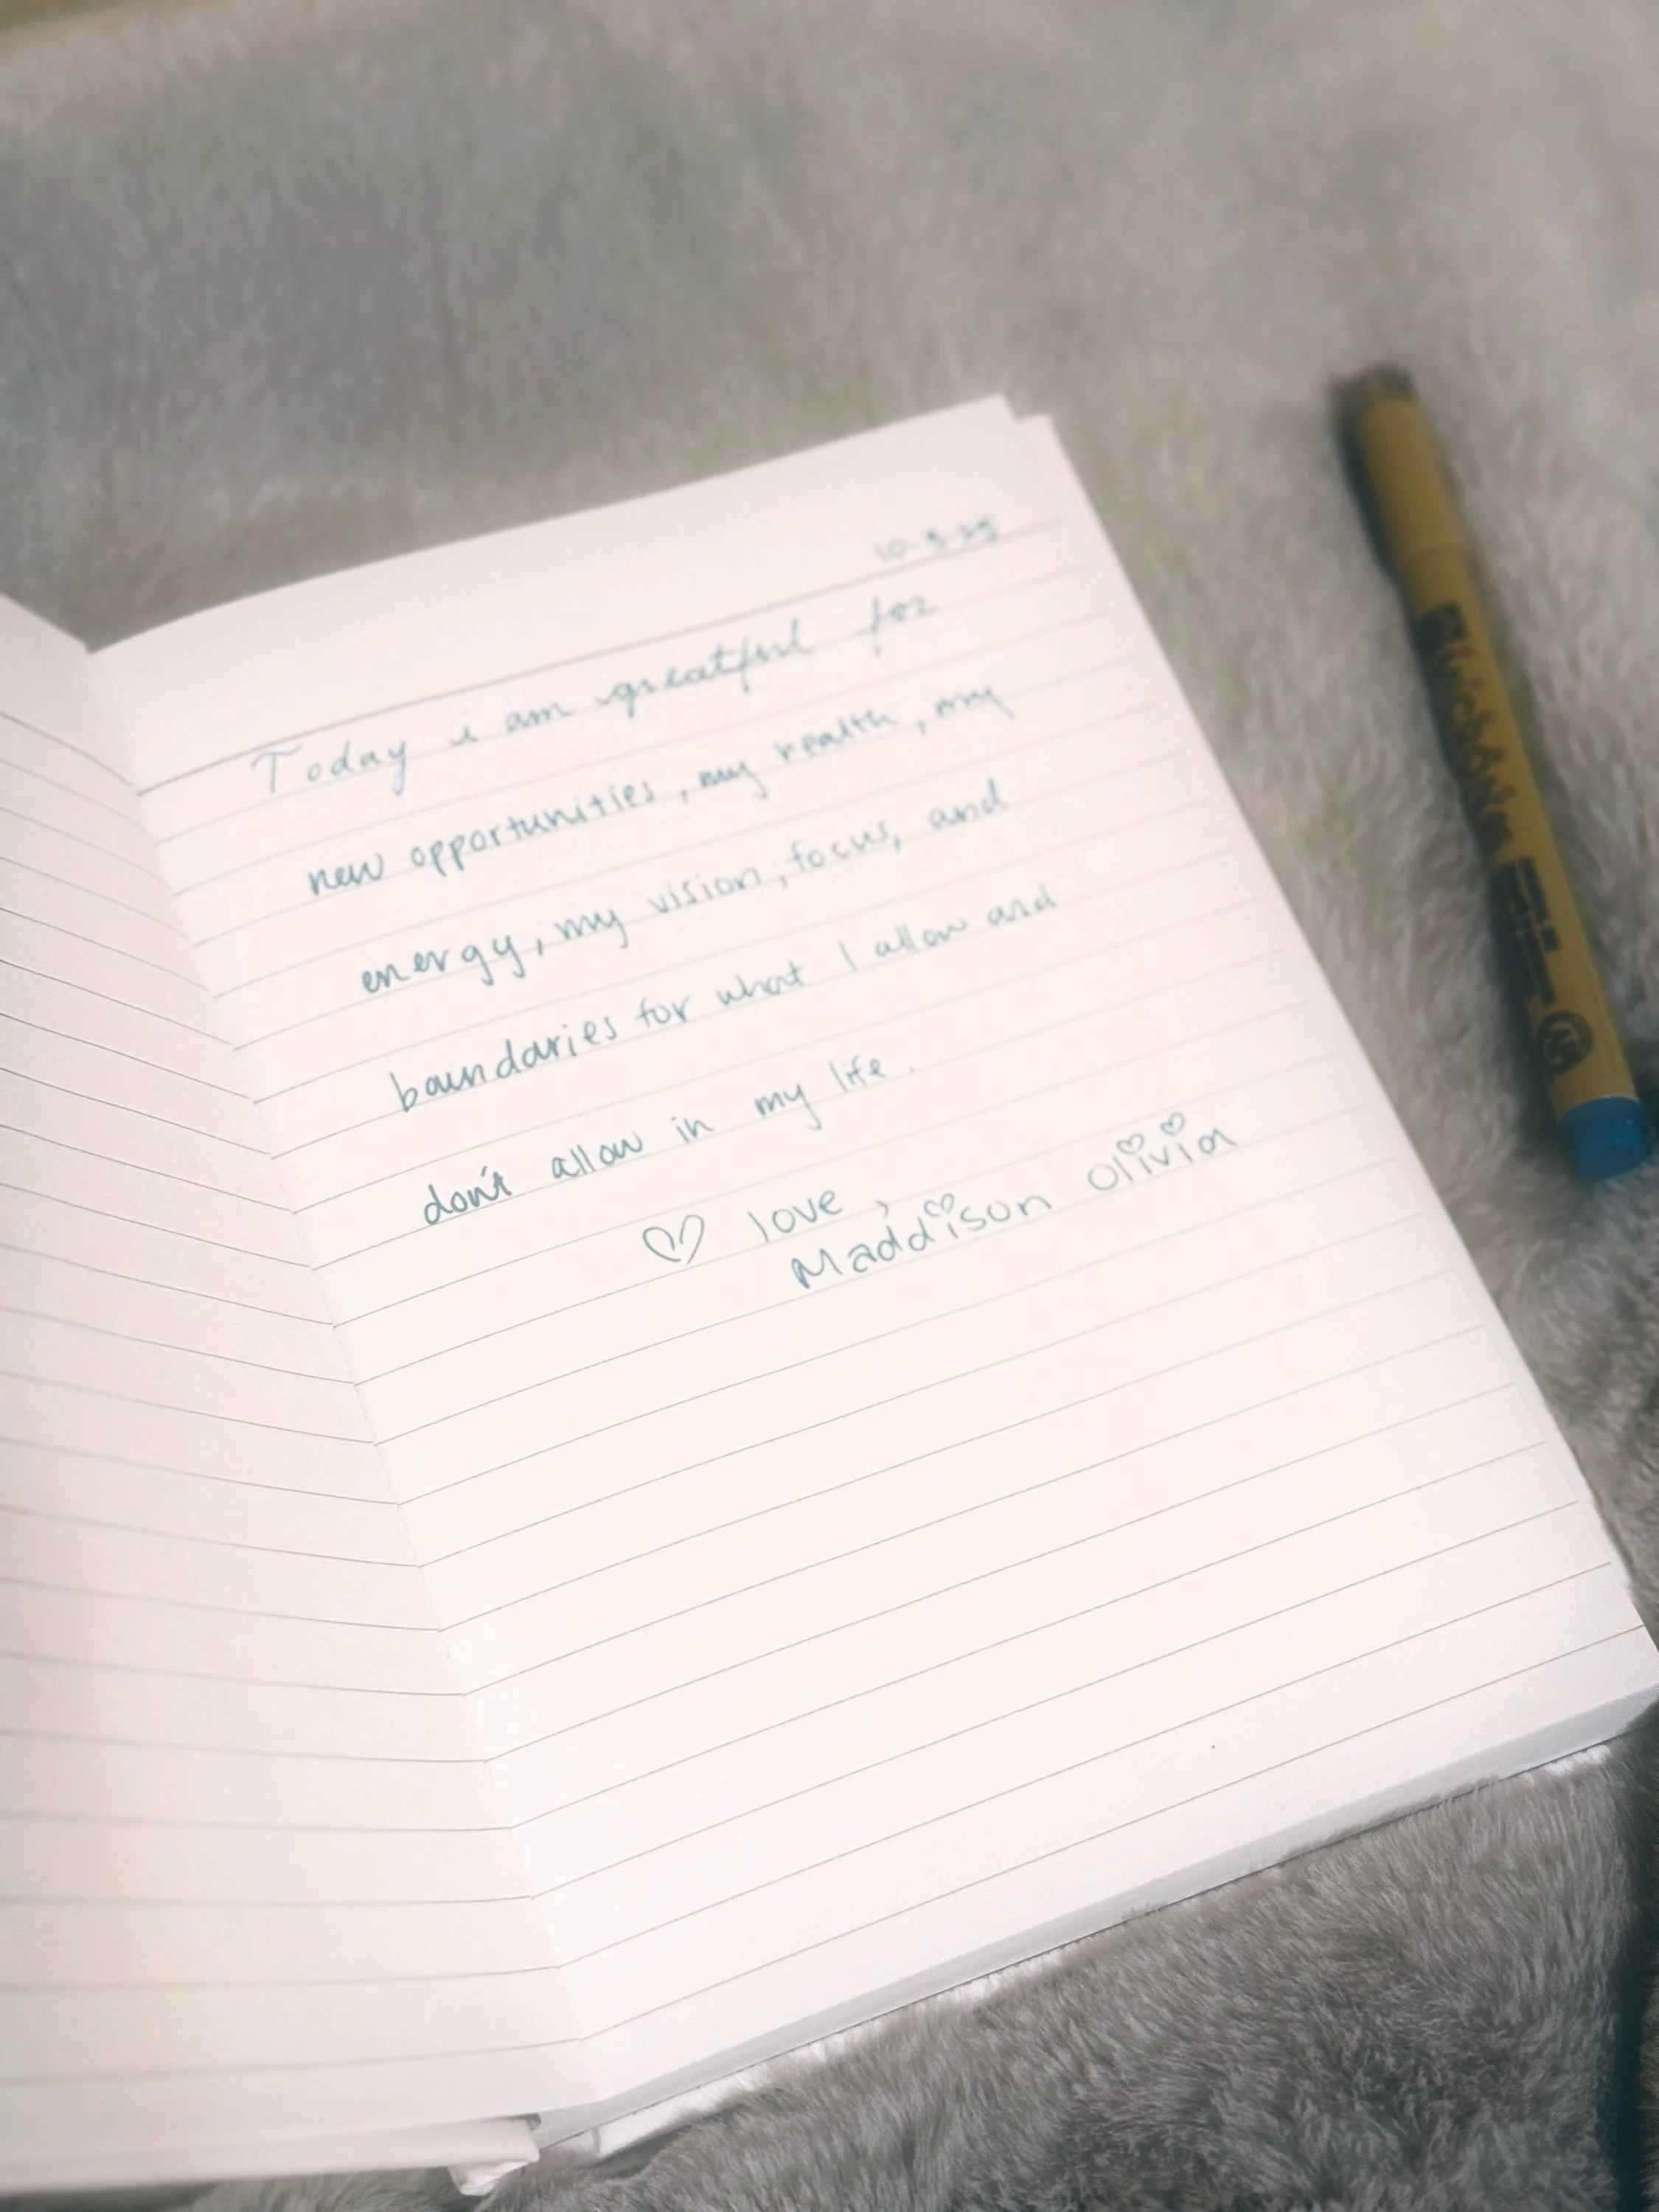 10-3-25
Today i am greatful for
new opportunities, my health, my
energy, my vision, focus, and
boundaries for what I allow and
don't allow in my life.
♡ love,
Maddison Olivia